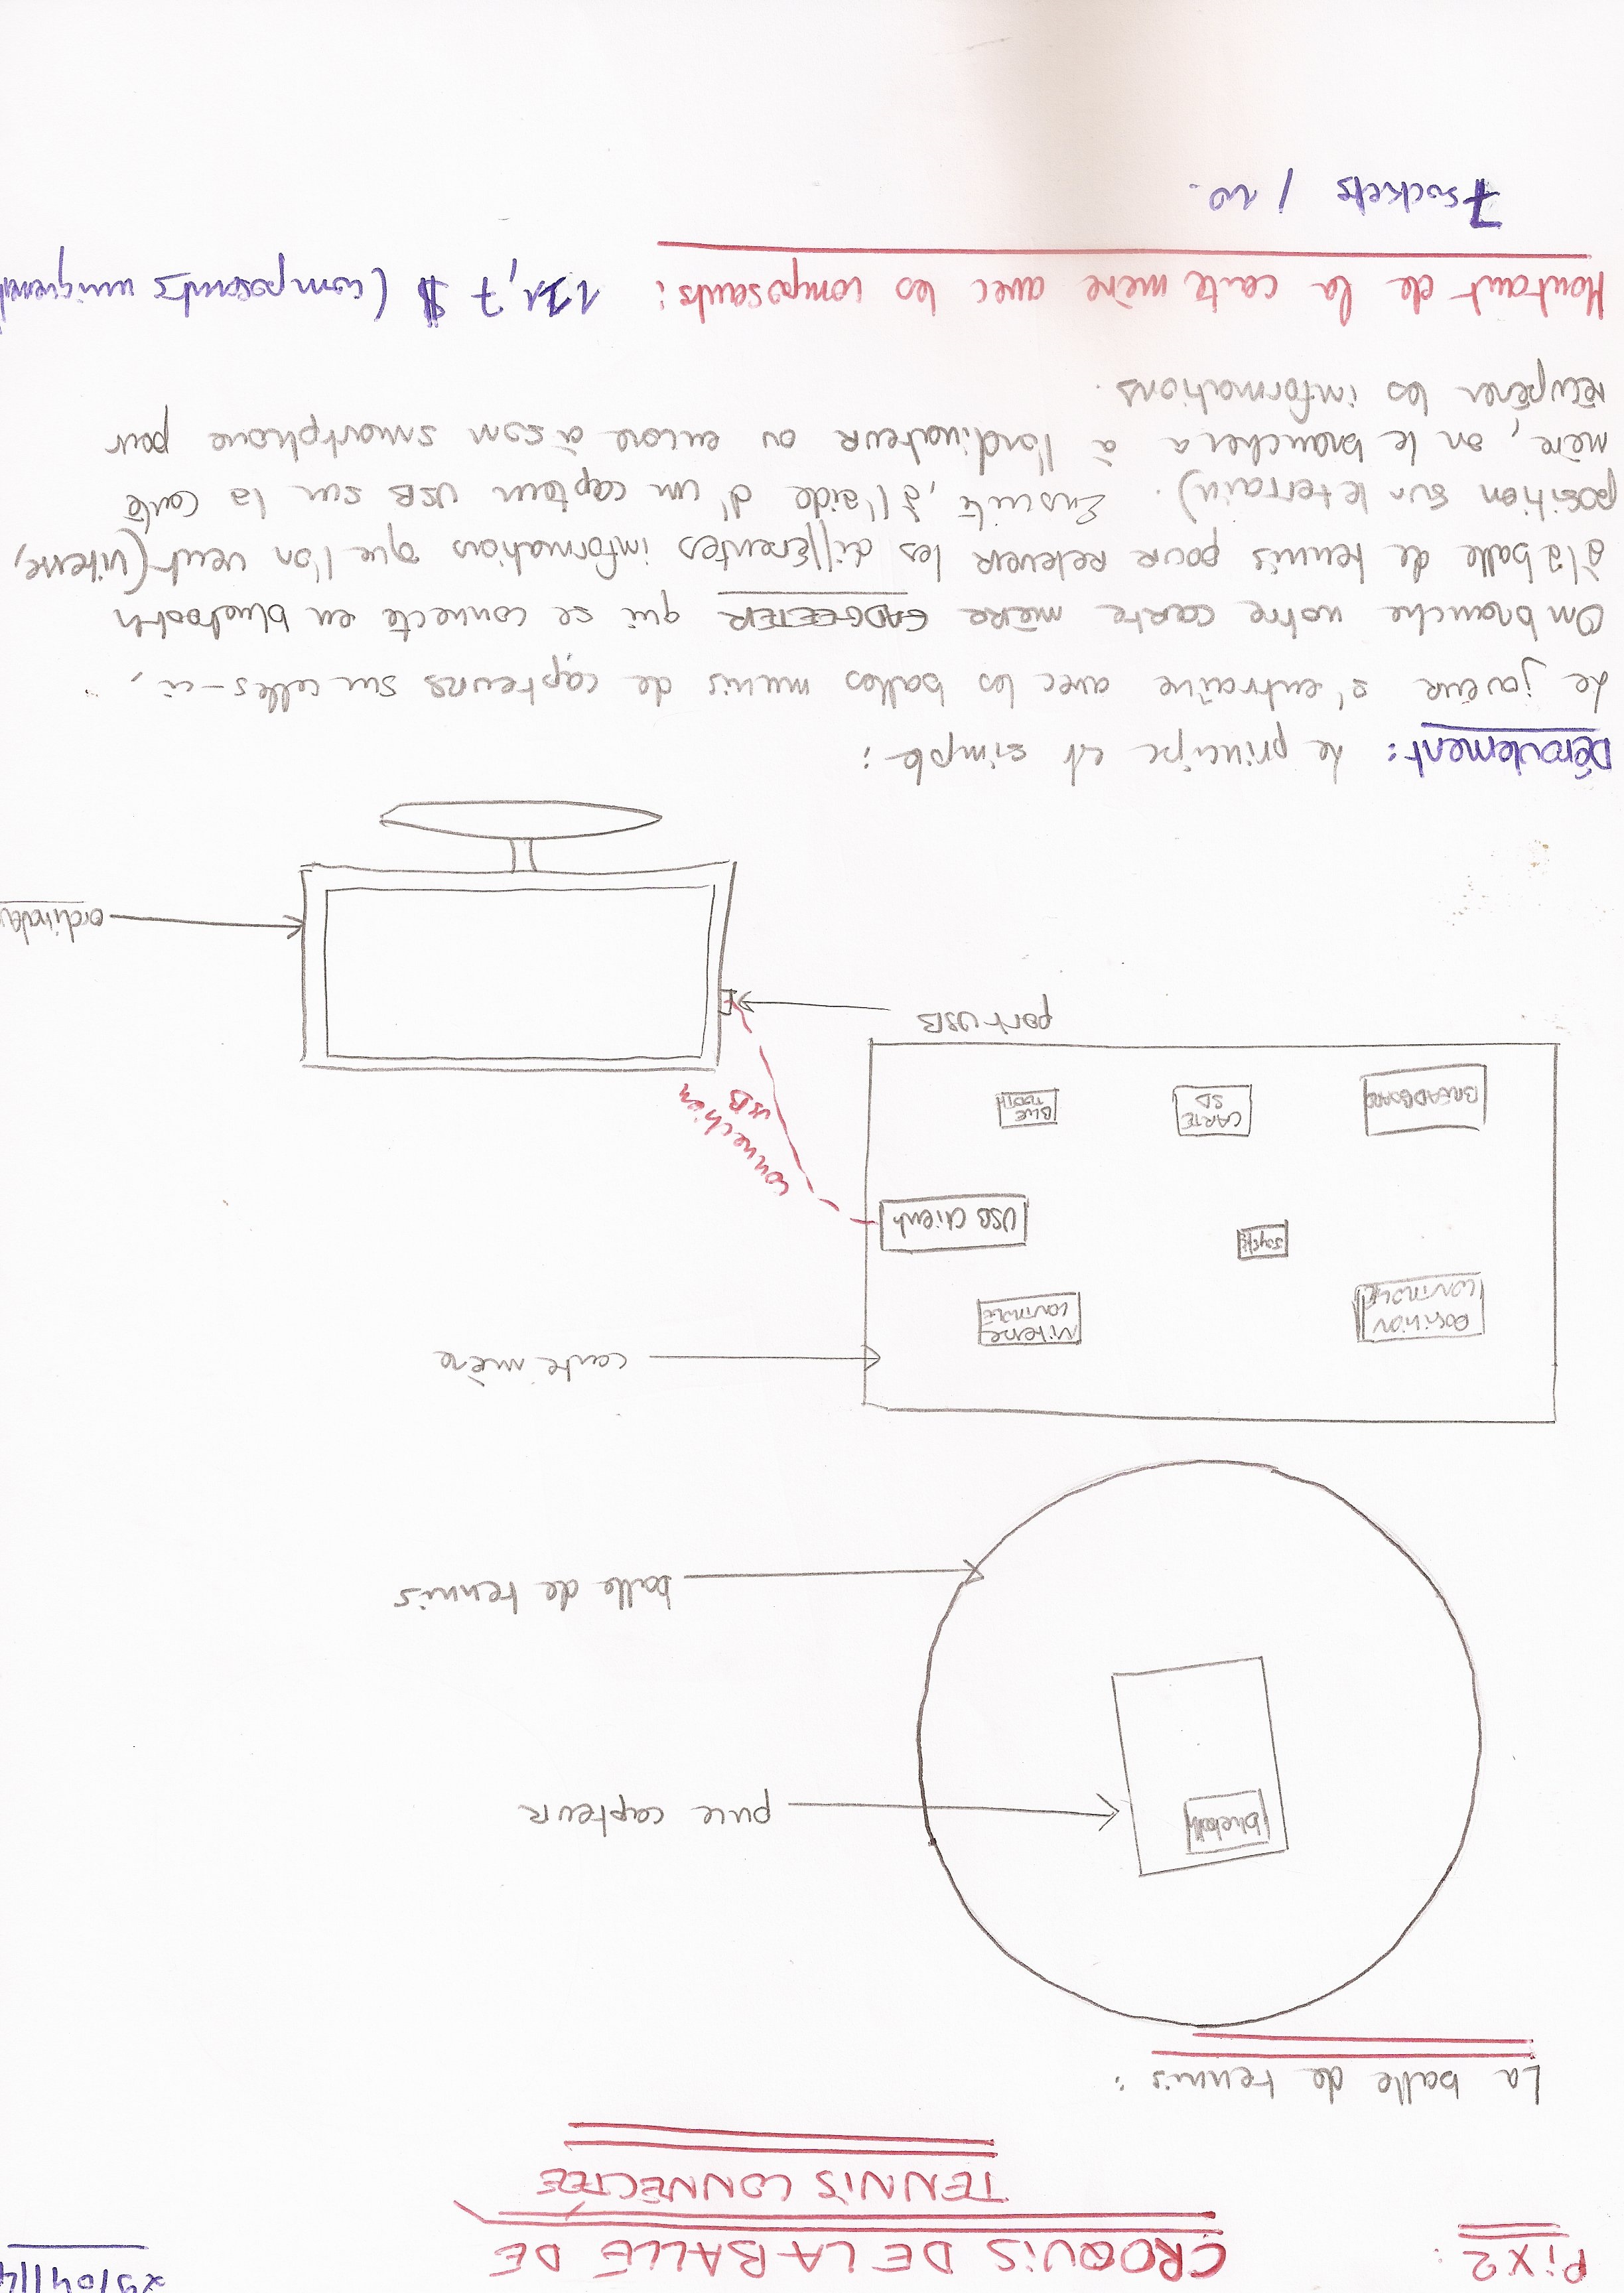 Pix2:
CROQUIS DE LA BALLE DE
TENNIS CONNECTEE
La balle de tennis :
bluetooth
puce capteur
balle de tennis
carte mère
POSITION
CONTROLE
VITESSE
CONTROLE
USB client
connection
USB
BREADBOARD
CARTE
SD
BLUE
TOOTH
port USB
Déroulement: Le principe est simple :
Le joueur s'entraîne avec les balles munis de capteurs sur celles-ci,
On branche notre carte mère GADGETEER qui se connecte en bluetooth
à la balle de tennis pour relever les différentes informations que l'on veut (vitesse,
position sur le terrain). Ensuite, à l'aide d'un capteur USB sur la carte
mère, on le branchera à l'ordinateur ou encore à son smartphone pour
récupérer les informations.
Montant de la carte mère avec les composants : 121,7 $ (composants
7 sockets / 10.